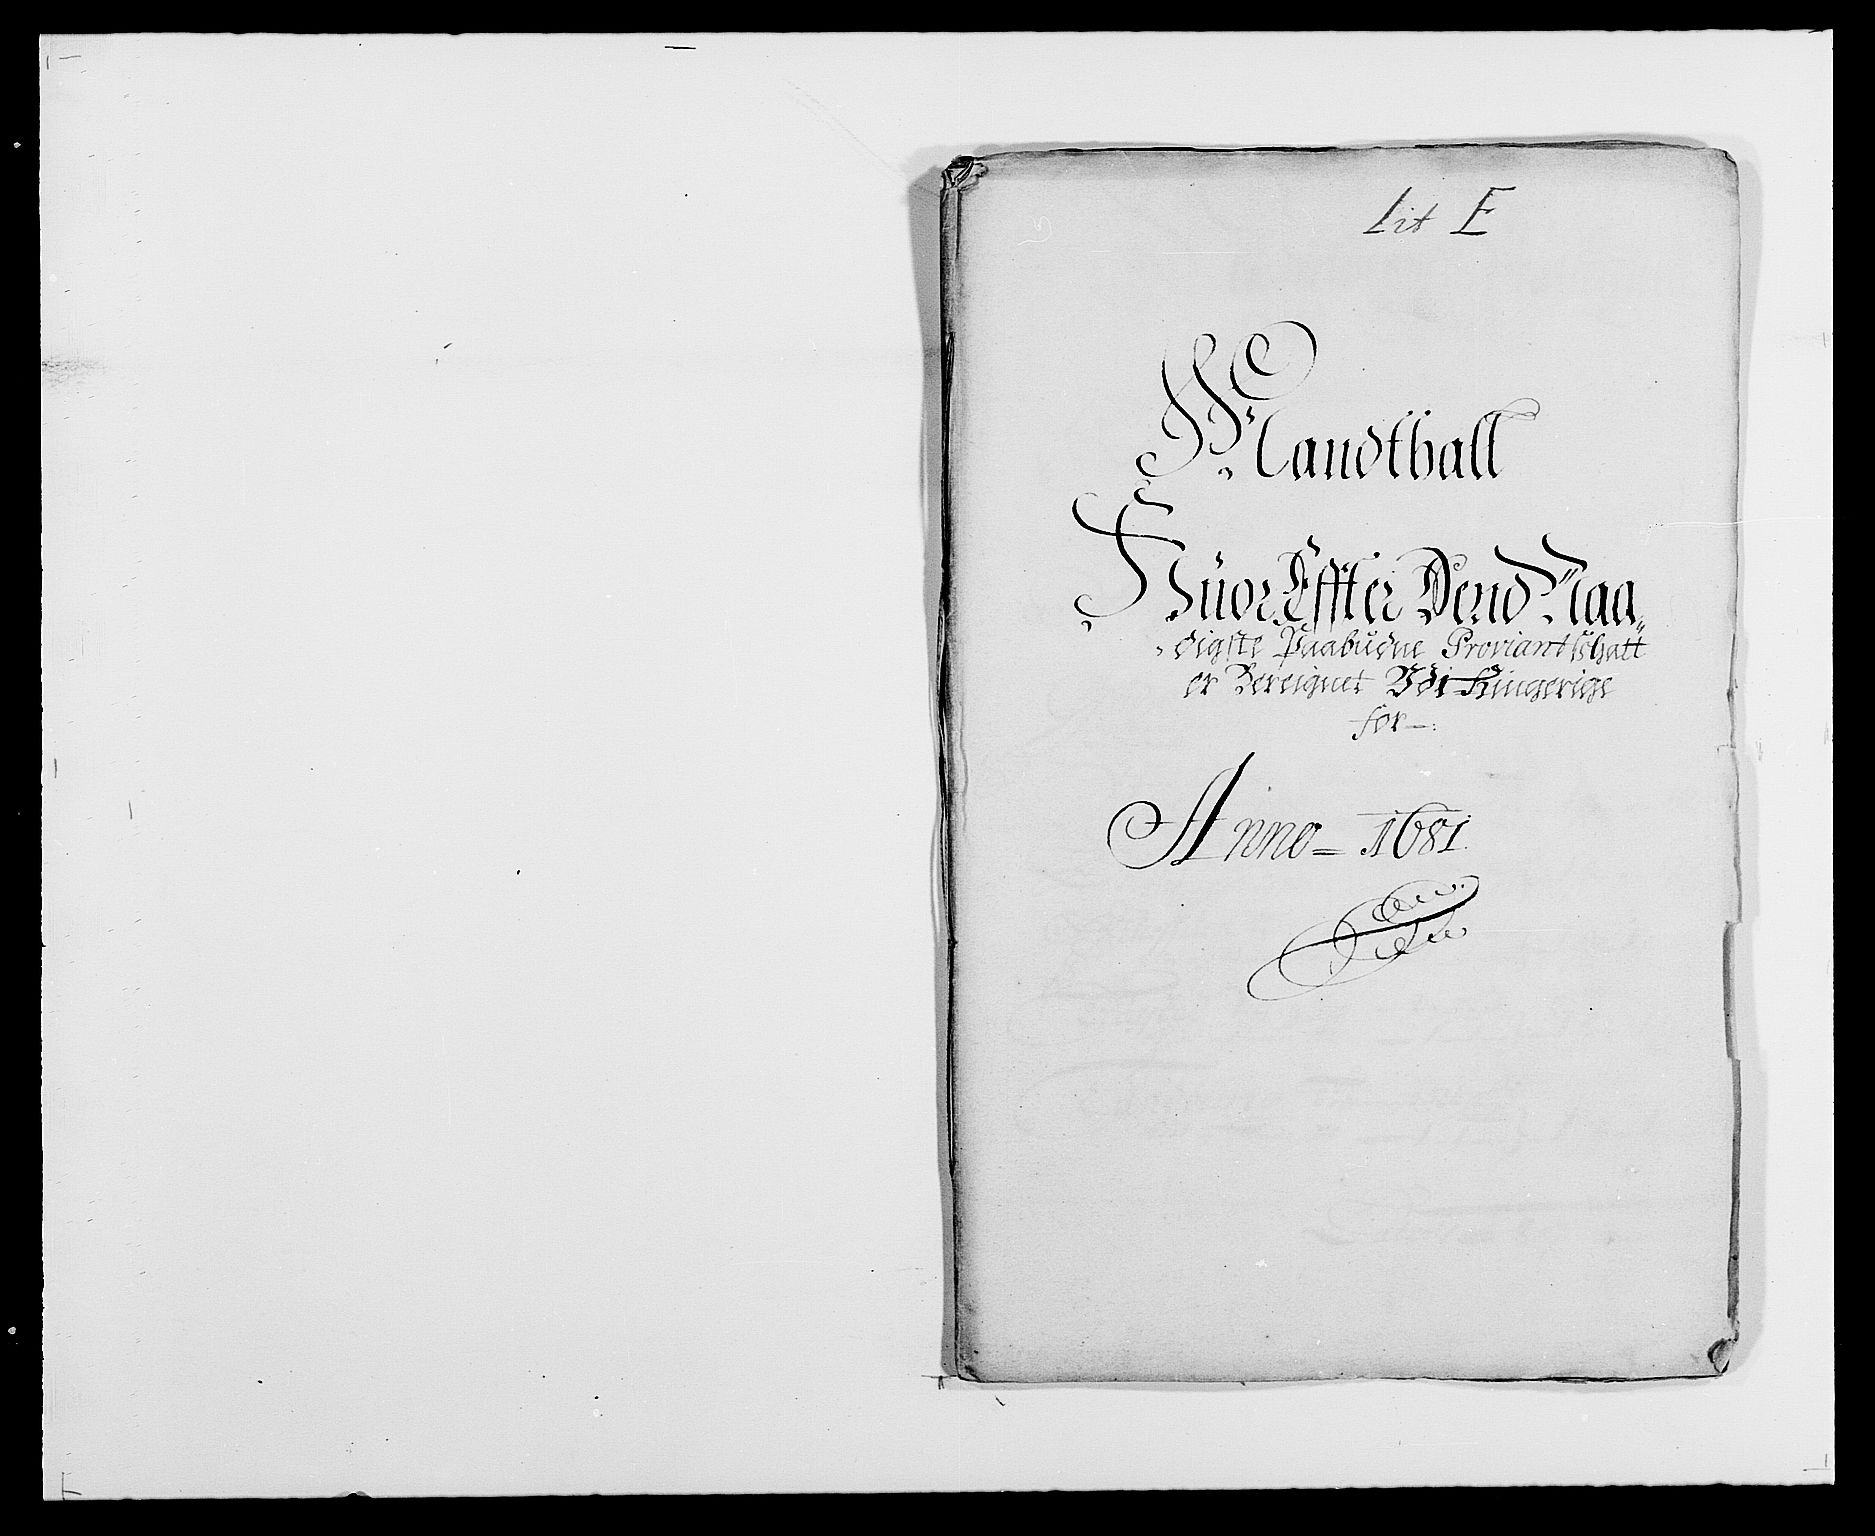 Lit E
Mandthall
Huor Effter Dend Naa„
digste Paabudne Proviantschatt
er Bereignet Vdi Ringerige
for —:
Anno — 1681.